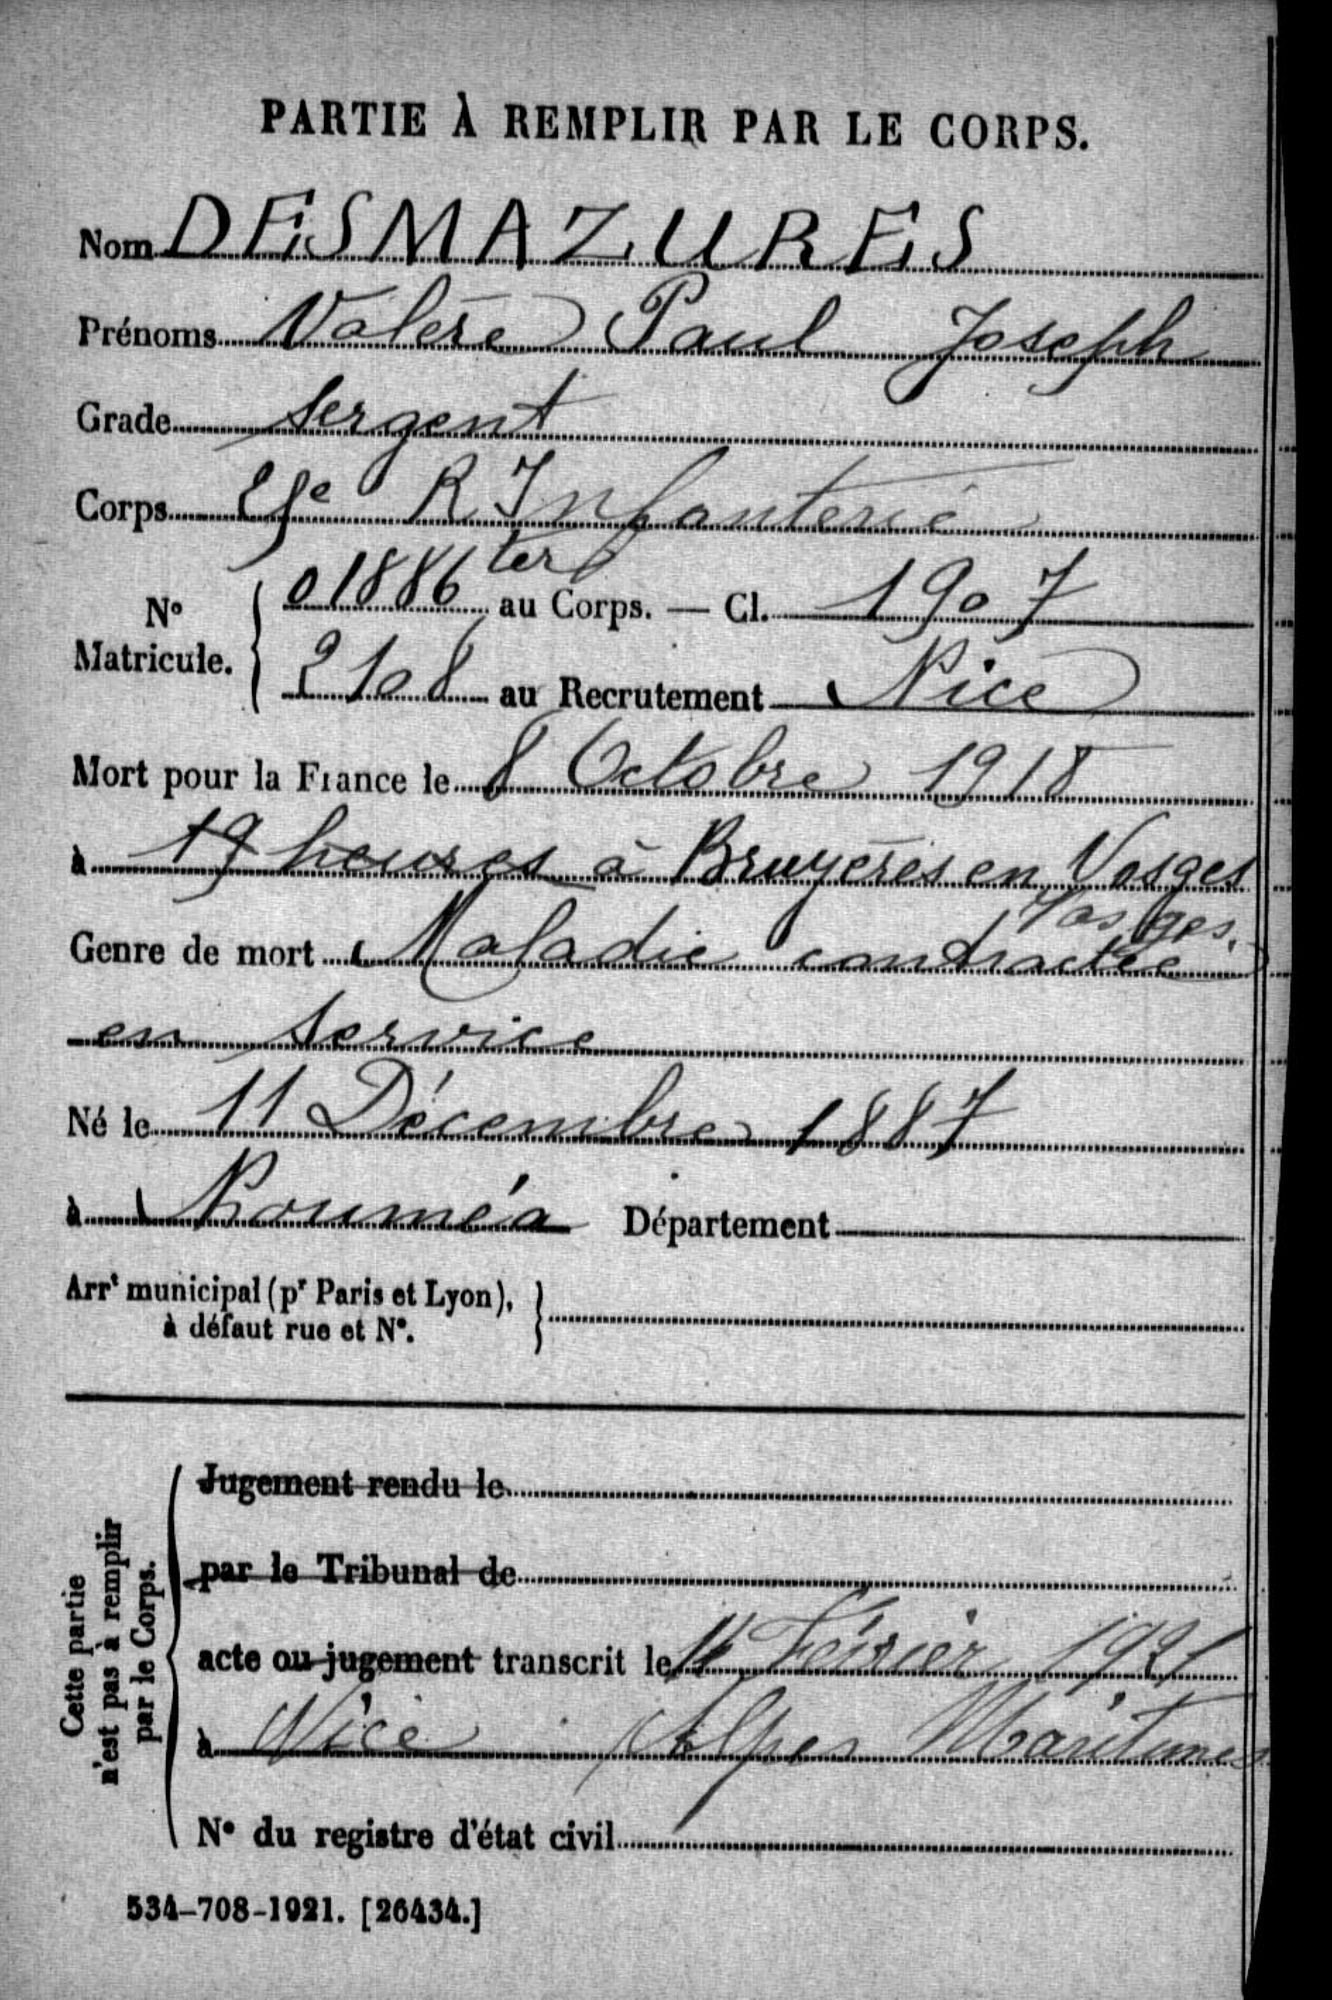 PARTIE À REMPLIR PAR LE CORPS.
Nom DESMAZURES
Prénoms Valère Paul Joseph
Grade Sergent
Corps R Infanterie
N° Matricule. 01886 ter au Corps. — Cl. 1907
2108 au Recrutement Nice
Mort pour la France le 8 Octobre 1918
à 19 heures à Bruyères en Vosges
Vosges.
Genre de mort Maladie contractée
en service
Né le 11 Décembre 1887
à Nouméa Département
Arrt municipal (pr Paris et Lyon), à défaut rue et N°.
Cette partie n'est pas à remplir par le Corps.
Jugement rendu le
par le Tribunal de
acte ou jugement transcrit le Février 1921
à Nice Alpes Maritimes
N° du registre d'état civil
534-708-1921. [26434.]